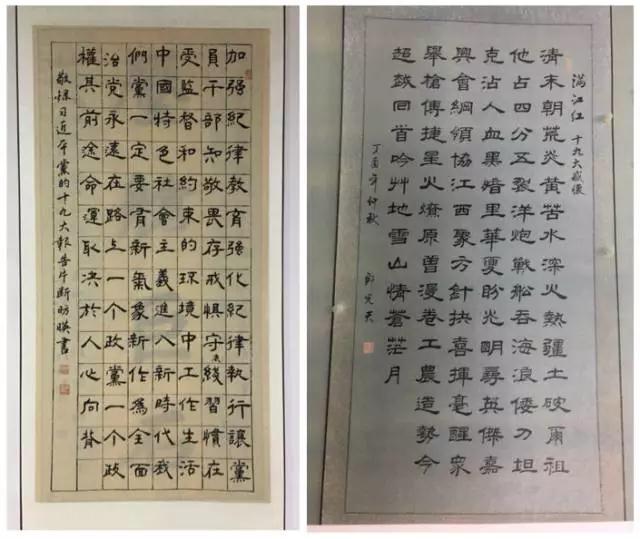 加强紀律教育強化紀律執行讓黨
員干部知敬畏存戒懼守底綫習慣在
受監督和約束的環境中工作生活
中國特色社會主義進入新時代我
們黨一定要有新氣象新作為全面
治党永遠在路上一个政黨一个政
權其前途命運取决於人心向背
敬録习近平黨的十九大報告片断 書
满江红 十九大感懷
清末朝荒炎黄苦水深火熱疆土破爾祖
他占四分五裂洋炮戰船吞海浪倭刀坦
克沾人血黑暗里華夏盼光明尋英傑嘉
興會綱領協江西聚方針抉喜揮毫醒眾
舉槍傳捷星火燎原曾漫卷工農造勢今
超越回首吟艸地雪山情蒼茫月
丁酉年仲秋